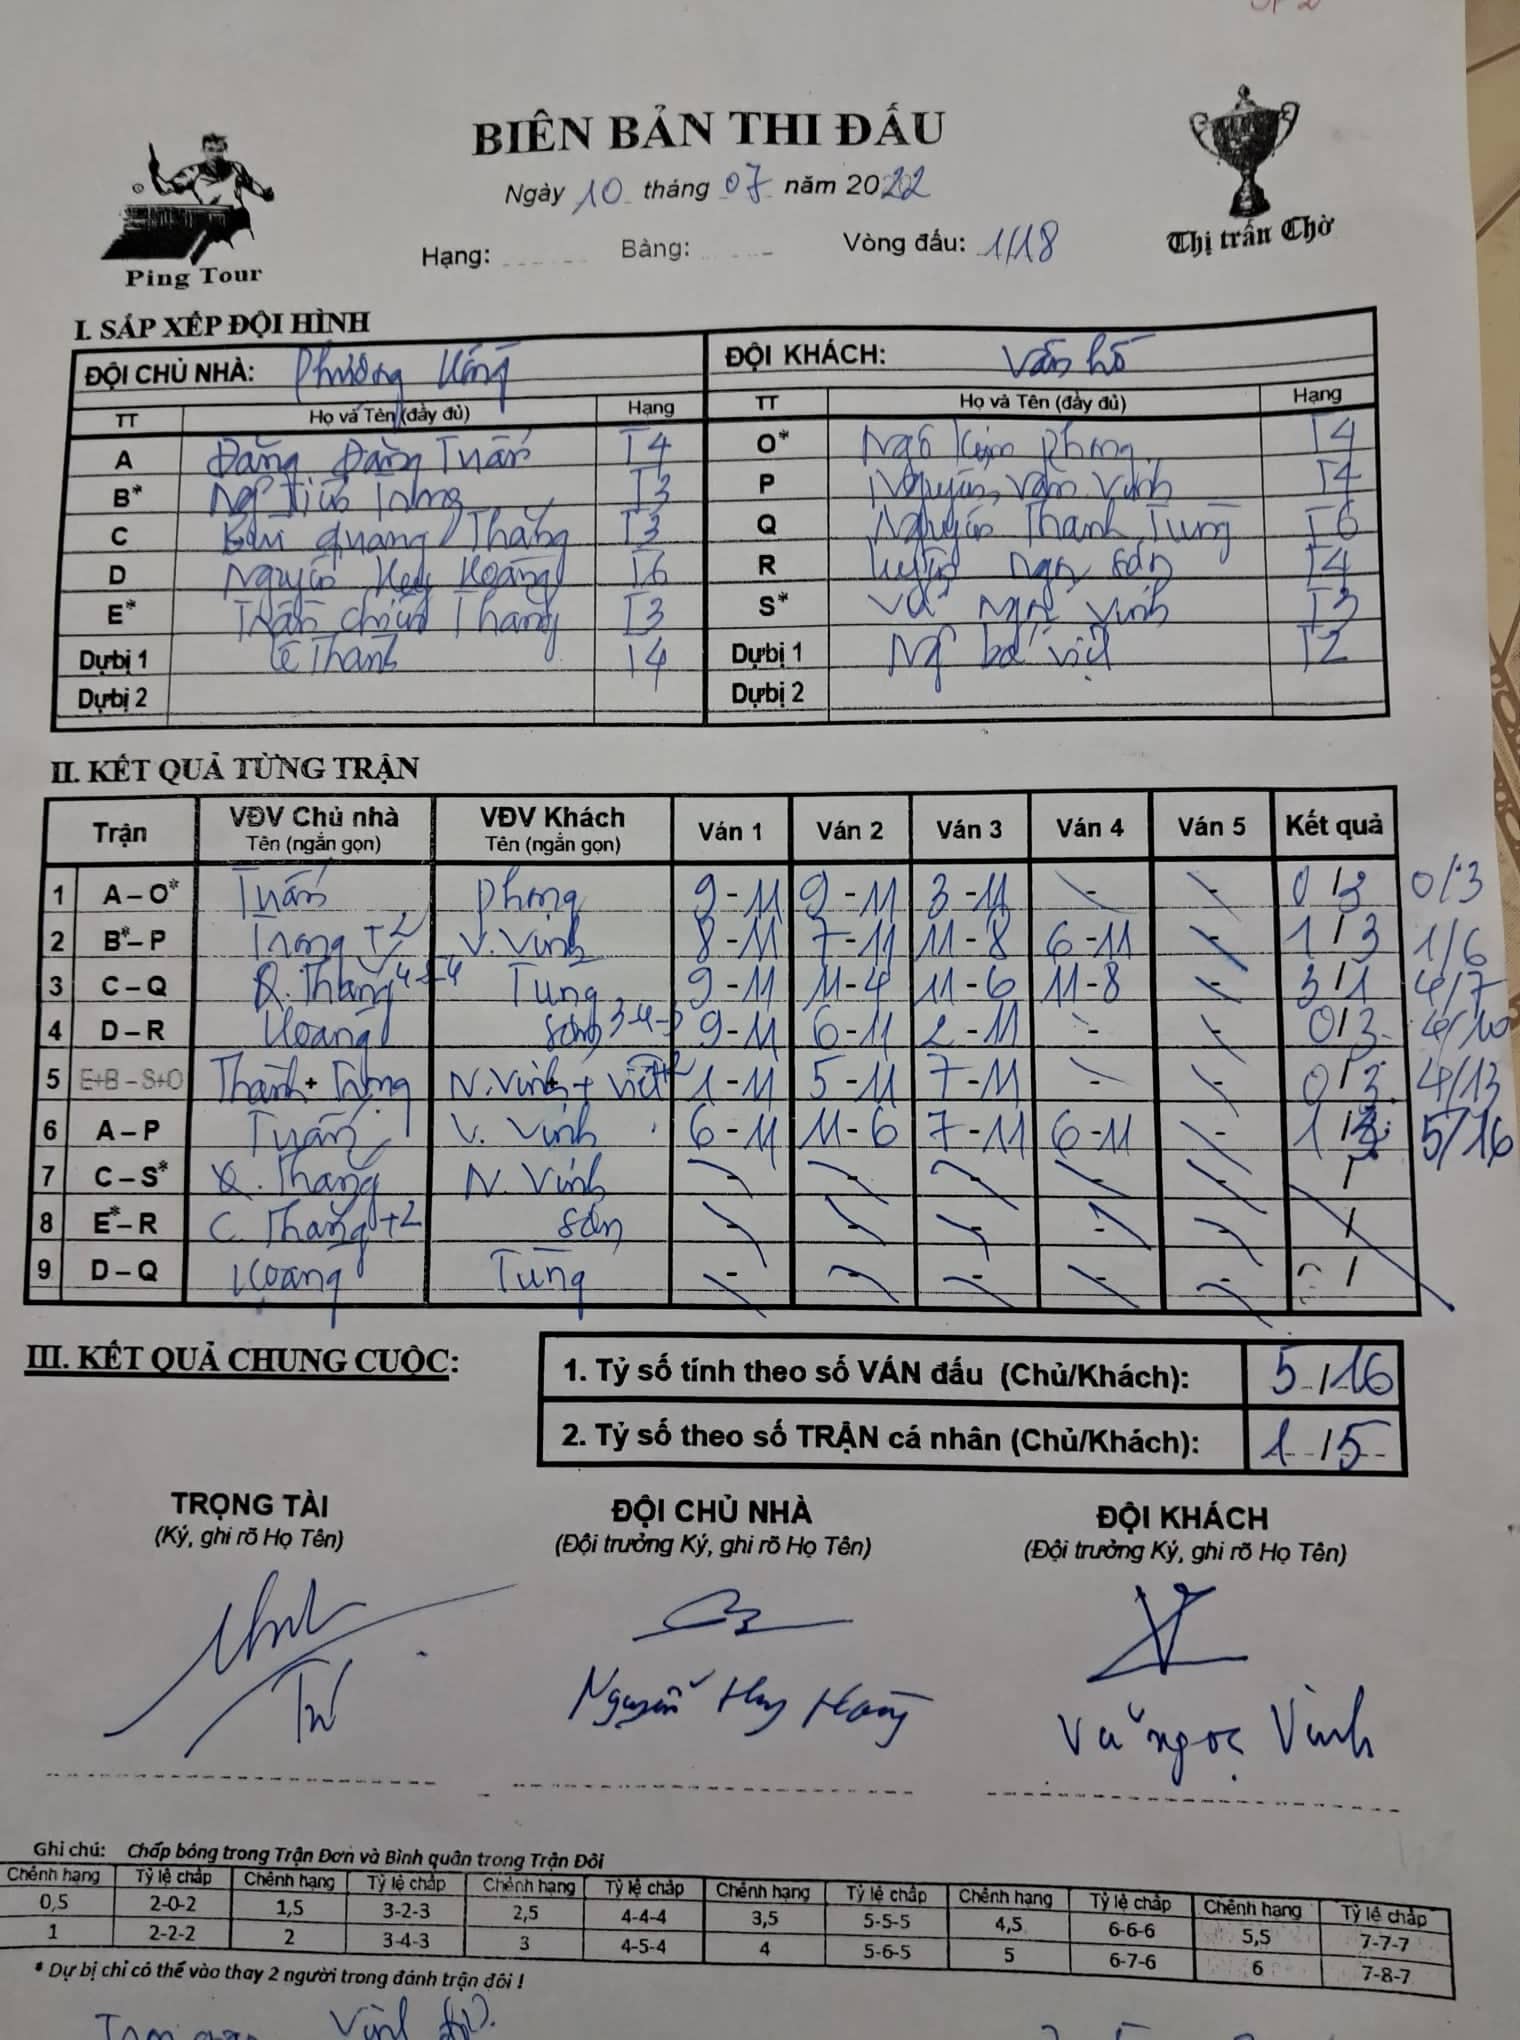 BIÊN BẢN THI ĐẤU
Ngày 10 tháng 07 năm 2022
Hạng: Bảng: Vòng đấu: 1/18
Ping Tour
Thị trấn Chờ
I. SẮP XẾP ĐỘI HÌNH
ĐỘI CHỦ NHÀ: Phương ĐỘI KHÁCH: Văn hố
TT Họ và Tên (đầy đủ) Hạng TT Họ và Tên (đầy đủ) Hạng
A Đặng Đăng Tuấn T4 O* Ngô Kim Phong T4
B* T3 P Nguyễn Văn Vinh T4
C Quang Thắng T3 Q Nguyễn Thanh Tùng T6
D Nguyễn Huy Hoàng T6 R T4
E* Trần Chiến Thắng T3 S* Vũ Ngọc Vinh T3
Dự bị 1 Lê Thành T4 Dự bị 1 Ng bá Việt T2
Dự bị 2 Dự bị 2
II. KẾT QUẢ TỪNG TRẬN
Trận VĐV Chủ nhà Tên (ngắn gọn) VĐV Khách Tên (ngắn gọn) Ván 1 Ván 2 Ván 3 Ván 4 Ván 5 Kết quả
1 A – O* Tuấn Phong 9 - 11 9 - 11 3 - 11 - - 0/3 0/3
2 B* – P +2 V. Vinh 8 - 11 7 - 11 11 - 8 6 - 11 - 1/3 1/6
3 C – Q Q. Thắng 4-5-4 Tùng 9 - 11 11 - 4 11 - 6 11 - 8 - 3/1 4/7
4 D – R Hoàng Sơn 3-4-3 9 - 11 6 - 11 2 - 11 - - 0/3 4/10
5 E+B – S+O Thành + N. Vinh + Việt +2 1 - 11 5 - 11 7 - 11 - - 0/3 4/13
6 A – P Tuấn V. Vinh 6 - 11 11 - 6 7 - 11 6 - 11 - 1/3 5/16
7 C – S* Q. Thắng N. Vinh - - - - - /
8 E* – R C. Thắng +2 Sơn - - - - - /
9 D – Q Hoàng Tùng - - - - - /
III. KẾT QUẢ CHUNG CUỘC:
1. Tỷ số tính theo số VÁN đấu (Chủ/Khách): 5/16
2. Tỷ số theo số TRẬN cá nhân (Chủ/Khách): 1/5
TRỌNG TÀI ĐỘI CHỦ NHÀ ĐỘI KHÁCH
(Ký, ghi rõ Họ Tên) (Đội trưởng Ký, ghi rõ Họ Tên) (Đội trưởng Ký, ghi rõ Họ Tên)
Nguyễn Huy Hoàng Vũ Ngọc Vinh
Ghi chú: Chấp bóng trong Trận Đơn và Bình quân trong Trận Đôi
Chênh hạng Tỷ lệ chấp Chênh hạng Tỷ lệ chấp Chênh hạng Tỷ lệ chấp Chênh hạng Tỷ lệ chấp Chênh hạng Tỷ lệ chấp Chênh hạng Tỷ lệ chấp
0,5 2-0-2 1,5 3-2-3 2,5 4-4-4 3,5 5-5-5 4,5 6-6-6 5,5 7-7-7
1 2-2-2 2 3-4-3 3 4-5-4 4 5-6-5 5 6-7-6 6 7-8-7
* Dự bị chỉ có thể vào thay 2 người trong đánh trận đôi !